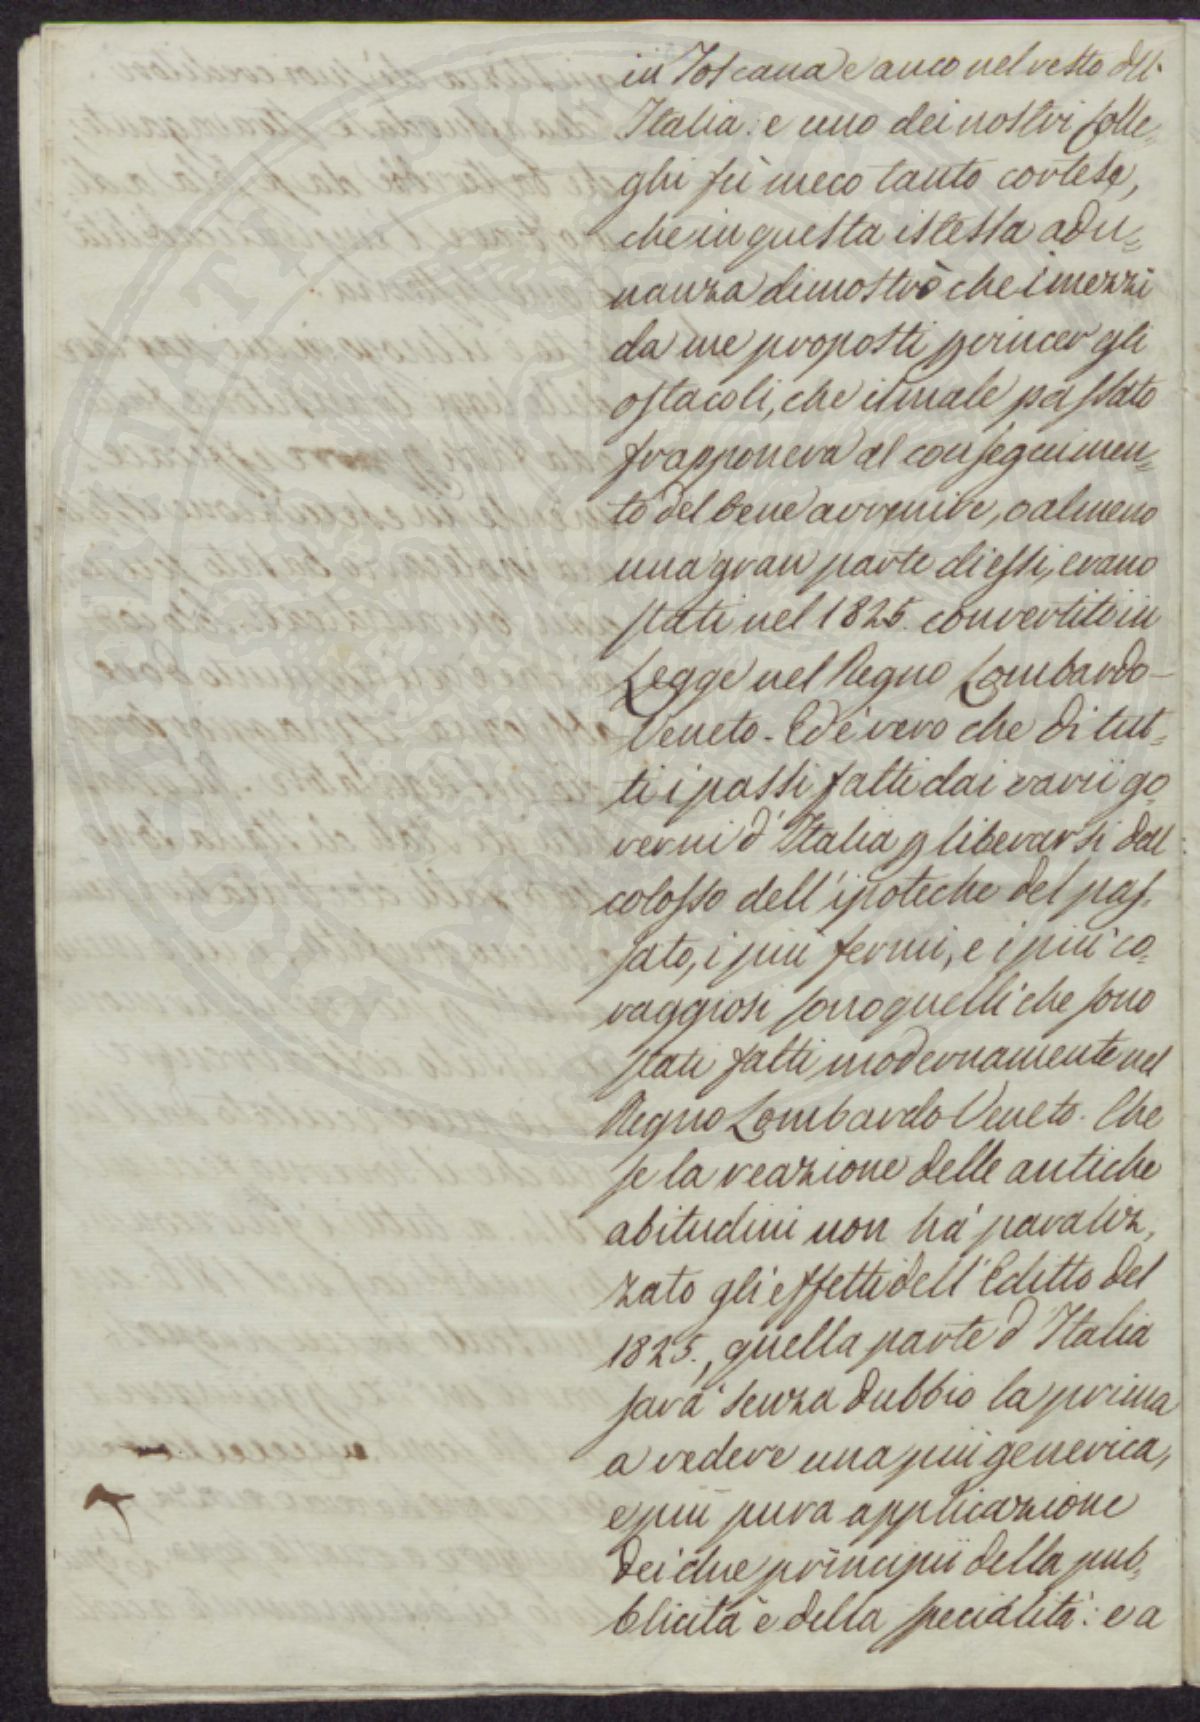 in Toscana e anco nel resto dell'
Italia: e uno dei nostri Colle-
ghi fù meco tanto cortese,
che in questa istessa adu-
nanza dimostrò che i mezzi
da me proposti p vincer gli
ostacoli, che il male passato
frapponeva al conseguimen-
to del bene avvenire, o almeno
una gran parte di essi, erano
stati nel 1825. convertiti in
Legge nel Regno Lombardo-
Veneto. Ed è vero che di tut-
ti i passi fatti dai varii go-
verni d'Italia p liberarsi dal
colosso dell'ipoteche del pas-
sato, i più fermi, e i più co-
raggiosi sono quelli che sono
stati fatti modernamente nel
Regno Lombardo Veneto. Che
se la reazione delle antiche
abitudini non ha paraliz-
zato gli effetti dell'Editto del
1825., quella parte d'Italia
sarà senza dubbio la prima
a vedere una più generica,
e più pura applicazione
dei due principii della pub-
blicità e della specialità: e a